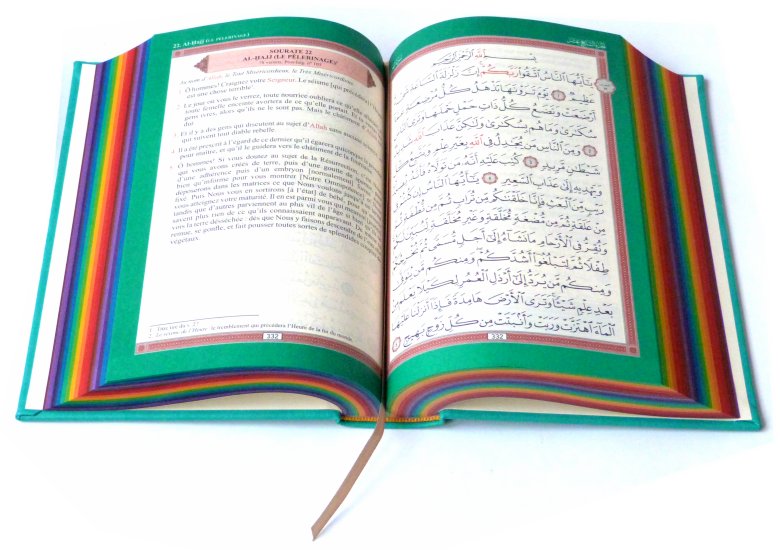 22. Al-Hajj (LE PÈLERINAGE)
SOURATE 22
AL-HAJJ (LE PÈLERINAGE)¹
78 versets
Au nom d'Allah, le Tout Miséricordieux, le Très Miséricordieux.
Ô hommes! Craignez votre Seigneur. Le séisme [qui précédera]
est une chose terrible.
Le jour où vous le verrez, toute nourrice oubliera ce qu'elle
toute femelle enceinte avortera de ce qu'elle portait. Et tu
gens ivres, alors qu'ils ne le sont pas. Mais le châtiment
dur.
Et il y a des gens qui discutent au sujet d'Allah sans aucune
qui suivent tout diable rebelle.
Il a été prescrit à l'égard de ce dernier qu'il égarera quiconque le
pour maître, et qu'il le guidera vers le châtiment de la
Ô hommes! Si vous doutez au sujet de la Résurrection,
que vous avons créés de terre, puis d'une goutte de
d'une adhérence puis d'un embryon [normalement]
bien qu'informe pour vous montrer [Notre Omnipotence]
déposerons dans les matrices ce que Nous voulons jusqu'à
fixé. Puis Nous vous en sortirons [à l'état] de bébé, pour
vous atteignez votre maturité. Il en est parmi vous qui meurent
tandis que d'autres parviennent au plus vil de l'âge si bien
savent plus rien de ce qu'ils connaissaient auparavant. De
vois la terre desséchée: dès que Nous y faisons descendre de
remue, se gonfle, et fait pousser toutes sortes de splendides
végétaux.
1 Titre tiré du v. 27.
2 Le séisme de l'Heure: le tremblement qui précédera l'Heure de la fin du monde.
332
بِسْمِ اللَّهِ الرَّحْمَٰنِ الرَّحِيمِ
يَا أَيُّهَا النَّاسُ اتَّقُوا رَبَّكُمْ إِنَّ زَلْزَلَةَ السَّاعَةِ
عَظِيمٌ ١ يَوْمَ تَرَوْنَهَا تَذْهَلُ كُلُّ مُرْضِعَةٍ
أَرْضَعَتْ وَتَضَعُ كُلُّ ذَاتِ حَمْلٍ حَمْلَهَا وَتَرَى
سُكَارَىٰ وَمَا هُم بِسُكَارَىٰ وَلَٰكِنَّ عَذَابَ
٢ وَمِنَ النَّاسِ مَن يُجَادِلُ فِي اللَّهِ بِغَيْرِ عِلْمٍ وَيَتَّبِعُ
شَيْطَانٍ مَّرِيدٍ ٣ كُتِبَ عَلَيْهِ أَنَّهُ مَن تَوَلَّاهُ
وَيَهْدِيهِ إِلَىٰ عَذَابِ السَّعِيرِ ٤ يَا أَيُّهَا النَّاسُ إِن
رَيْبٍ مِّنَ الْبَعْثِ فَإِنَّا خَلَقْنَاكُم مِّن تُرَابٍ ثُمَّ مِن نُّطْفَةٍ
مِنْ عَلَقَةٍ ثُمَّ مِن مُّضْغَةٍ مُّخَلَّقَةٍ وَغَيْرِ مُخَلَّقَةٍ
وَنُقِرُّ فِي الْأَرْحَامِ مَا نَشَاءُ إِلَىٰ أَجَلٍ مُّسَمًّى ثُمَّ نُخْرِجُكُمْ
طِفْلًا ثُمَّ لِتَبْلُغُوا أَشُدَّكُمْ وَمِنكُم مَّن يُتَوَفَّىٰ
وَمِنكُم مَّن يُرَدُّ إِلَىٰ أَرْذَلِ الْعُمُرِ لِكَيْلَا يَعْلَمَ
بَعْدِ عِلْمٍ شَيْئًا وَتَرَى الْأَرْضَ هَامِدَةً فَإِذَا أَنزَلْنَا عَلَيْهَا
الْمَاءَ اهْتَزَّتْ وَرَبَتْ وَأَنبَتَتْ مِن كُلِّ زَوْجٍ بَهِيجٍ ٥
332